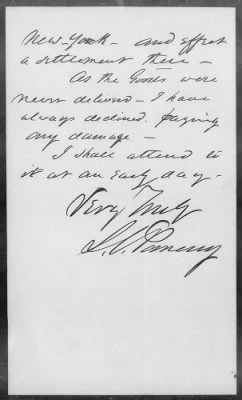 New-York - and effect
a settlement there -
As the Goods were
never delivered - I have
always declined paying
any damage -
I shall attend to
it at an early day -
Very Truly
S. C. Pomeroy